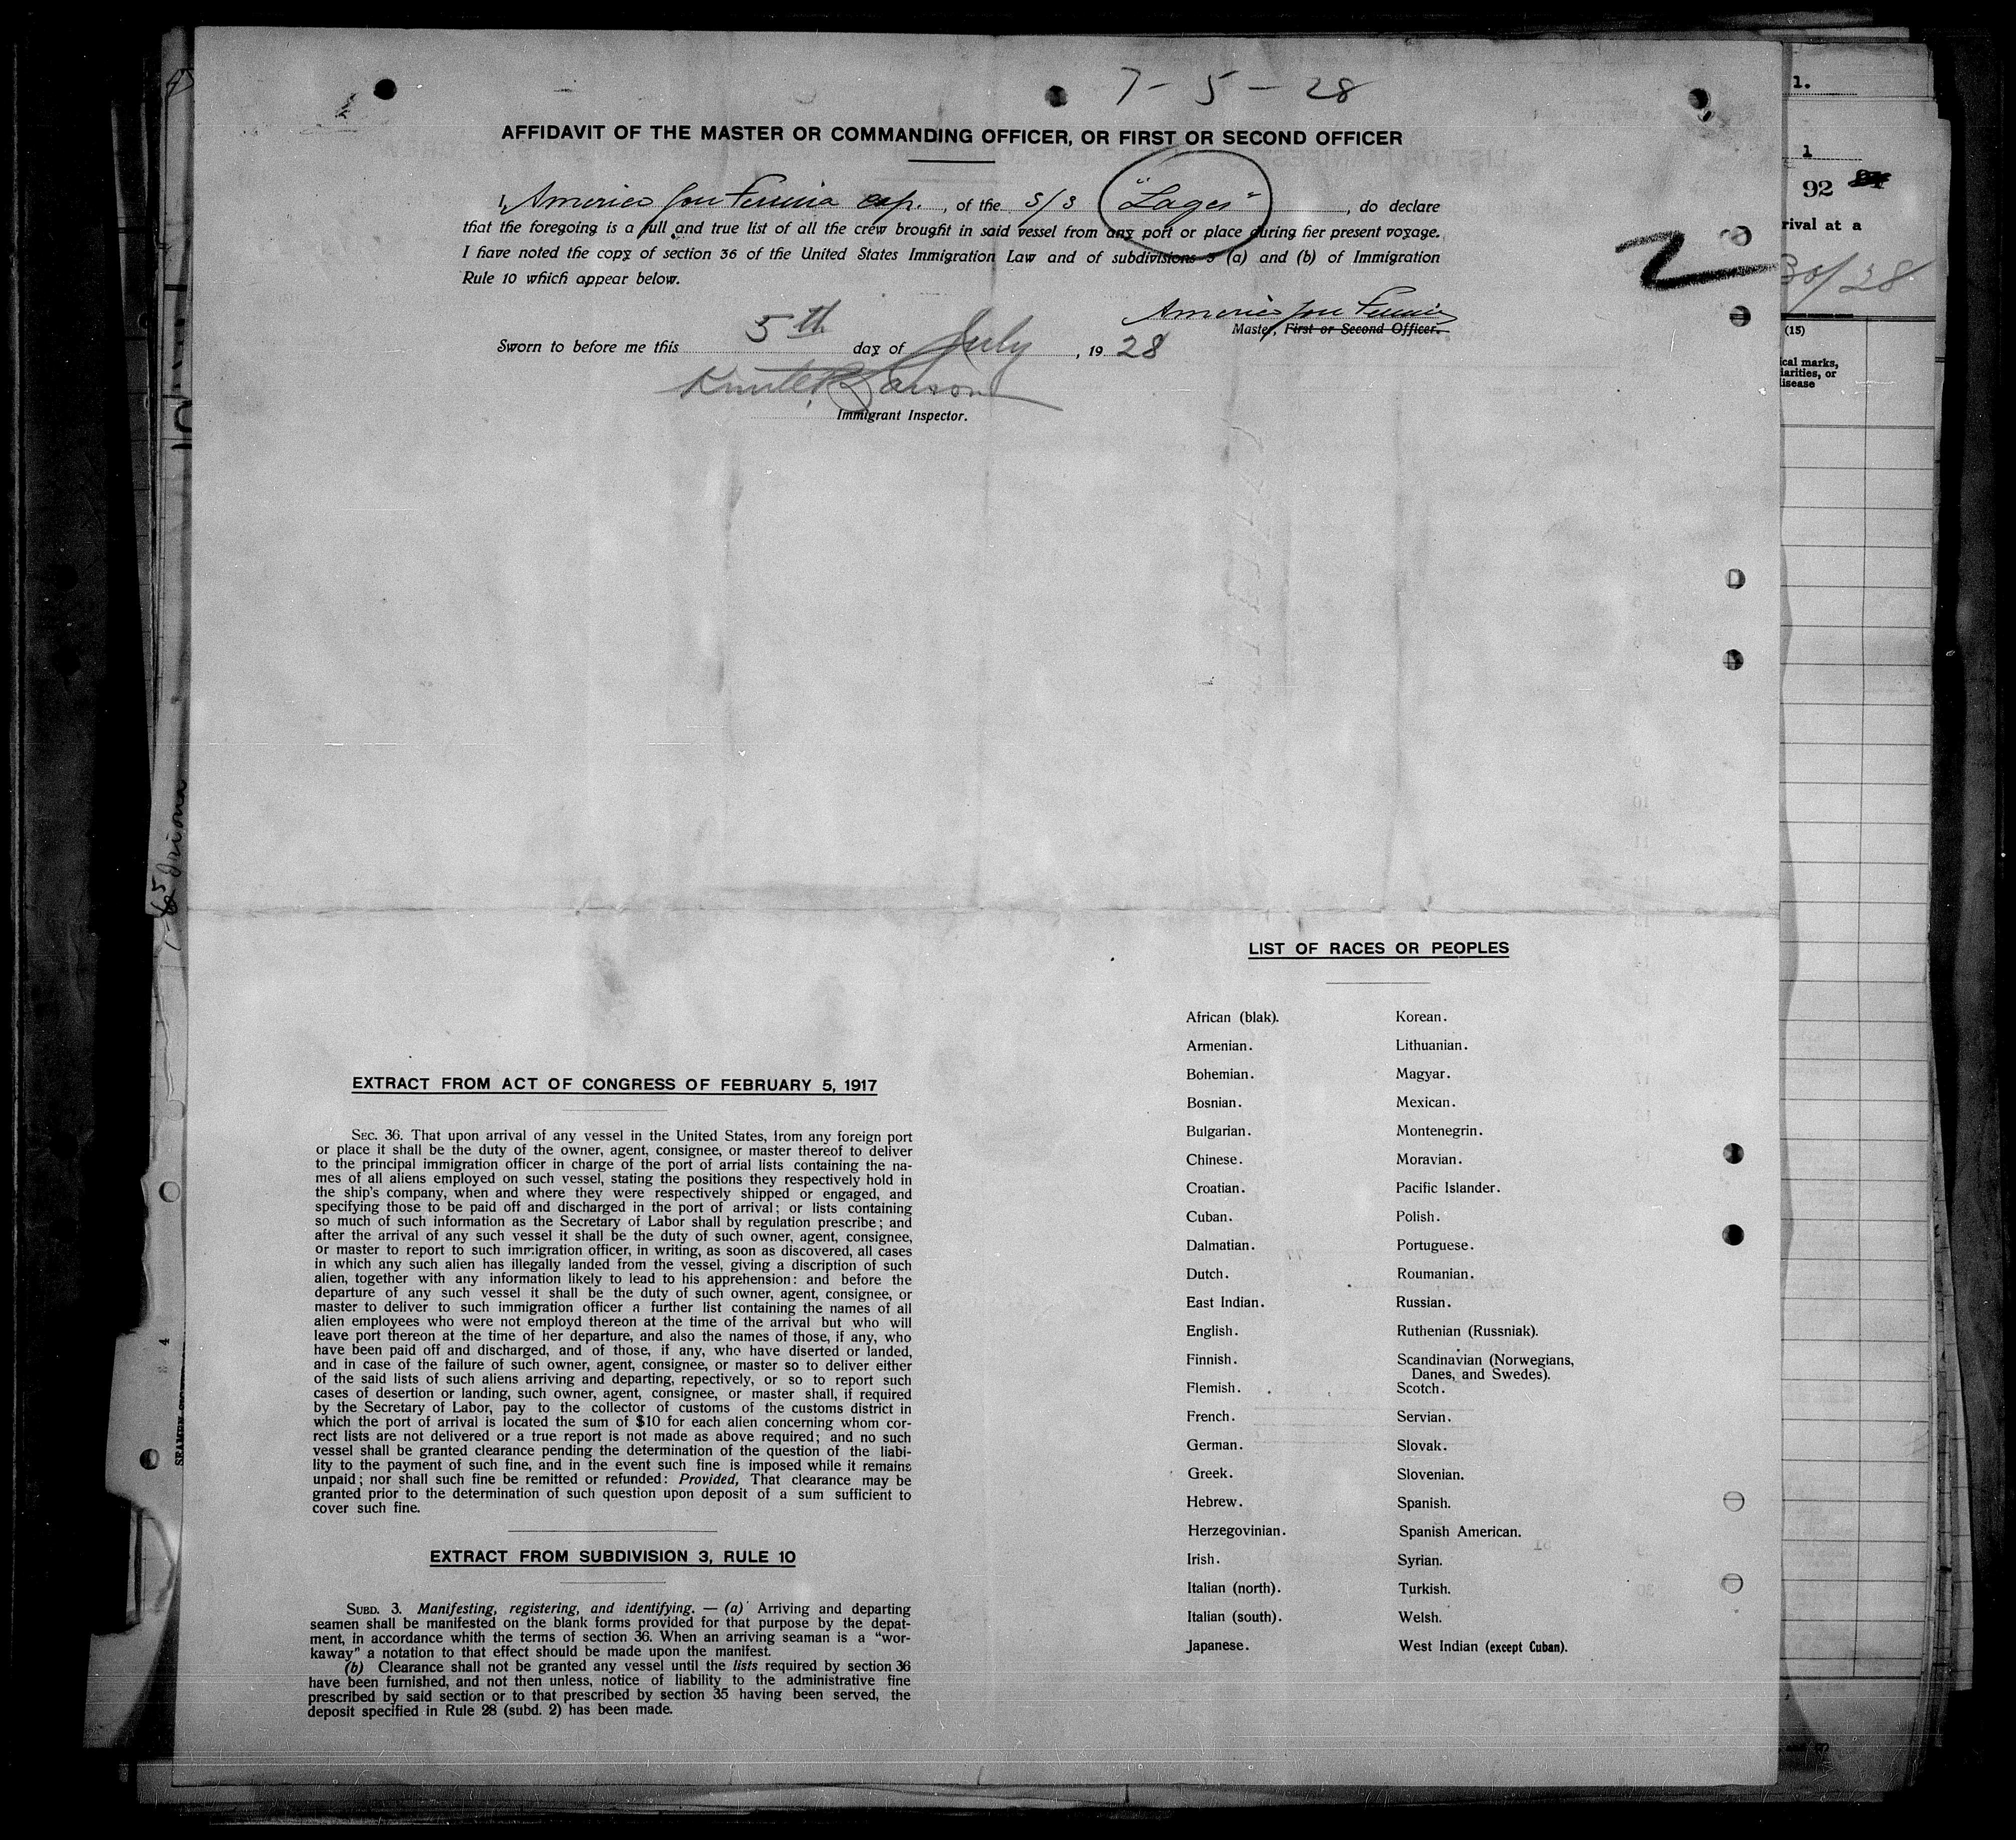 7 - 5 - 28
AFFIDAVIT OF THE MASTER OR COMMANDING OFFICER, OR FIRST OR SECOND OFFICER
I, Americo cap. , of the S/S "Lages" , do declare
that the foregoing is a full and true list of all the crew brought in said vessel from any port or place during her present voyage.
I have noted the copy of section 36 of the United States Immigration Law and of subdivisions 3 (a) and (b) of Immigration
Rule 10 which appear below.
2
Americo
Master, First or Second Officer.
Sworn to before me this 5th day of July , 19 28
Larson
Immigrant Inspector.
LIST OF RACES OR PEOPLES
African (blak).
Armenian.
Bohemian.
Bosnian.
Bulgarian.
Chinese.
Croatian.
Cuban.
Dalmatian.
Dutch.
East Indian.
English.
Finnish.
Flemish.
French.
German.
Greek.
Hebrew.
Herzegovinian.
Irish.
Italian (north).
Italian (south).
Japanese.
Korean.
Lithuanian.
Magyar.
Mexican.
Montenegrin.
Moravian.
Pacific Islander.
Polish.
Portuguese.
Roumanian.
Russian.
Ruthenian (Russniak).
Scandinavian (Norwegians,
Danes, and Swedes).
Scotch.
Servian.
Slovak.
Slovenian.
Spanish.
Spanish American.
Syrian.
Turkish.
Welsh.
West Indian (except Cuban).
EXTRACT FROM ACT OF CONGRESS OF FEBRUARY 5, 1917
SEC. 36. That upon arrival of any vessel in the United States, from any foreign port
or place it shall be the duty of the owner, agent, consignee, or master thereof to deliver
to the principal immigration officer in charge of the port of arrial lists containing the na-
mes of all aliens employed on such vessel, stating the positions they respectively hold in
the ship's company, when and where they were respectively shipped or engaged, and
specifying those to be paid off and discharged in the port of arrival; or lists containing
so much of such information as the Secretary of Labor shall by regulation prescribe; and
after the arrival of any such vessel it shall be the duty of such owner, agent, consignee,
or master to report to such immigration officer, in writing, as soon as discovered, all cases
in which any such alien has illegally landed from the vessel, giving a discription of such
alien, together with any information likely to lead to his apprehension: and before the
departure of any such vessel it shall be the duty of such owner, agent, consignee, or
master to deliver to such immigration officer a further list containing the names of all
alien employees who were not employd thereon at the time of the arrival but who will
leave port thereon at the time of her departure, and also the names of those, if any, who
have been paid off and discharged, and of those, if any, who have diserted or landed,
and in case of the failure of such owner, agent, consignee, or master so to deliver either
of the said lists of such aliens arriving and departing, repectively, or so to report such
cases of desertion or landing, such owner, agent, consignee, or master shall, if required
by the Secretary of Labor, pay to the collector of customs of the customs district in
which the port of arrival is located the sum of $10 for each alien concerning whom cor-
rect lists are not delivered or a true report is not made as above required; and no such
vessel shall be granted clearance pending the determination of the question of the liabi-
lity to the payment of such fine, and in the event such fine is imposed while it remains
unpaid; nor shall such fine be remitted or refunded: Provided, That clearance may be
granted prior to the determination of such question upon deposit of a sum sufficient to
cover such fine.
EXTRACT FROM SUBDIVISION 3, RULE 10
SUBD. 3. Manifesting, registering, and identifying. — (a) Arriving and departing
seamen shall be manifested on the blank forms provided for that purpose by the depat-
ment, in accordance whith the terms of section 36. When an arriving seaman is a "wor-
kaway" a notation to that effect should be made upon the manifest.
(b) Clearance shall not be granted any vessel until the lists required by section 36
have been furnished, and not then unless, notice of liability to the administrative fine
prescribed by said section or to that prescribed by section 35 having been served, the
deposit specified in Rule 28 (subd. 2) has been made.
1.
1
92
rival at a
30/28
(15)
ical marks,
iarities, or
disease
4